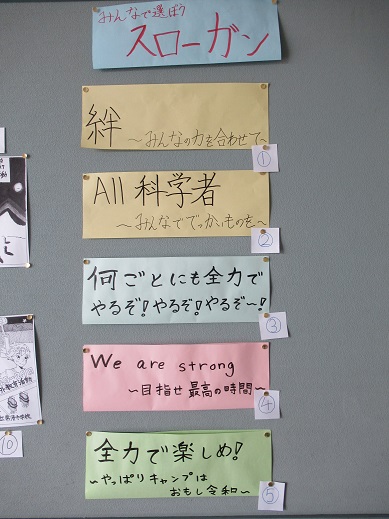 みんなで選ぼう
スローガン
絆
～みんなの力を合わせて～
①
All 科学者
～みんなででっかいものを～
②
何ごとにも全力で
やるぞ!やるぞ!やるぞ～!
③
We are strong
～目指せ最高の時間～
④
全力で楽しめ!
～やっぱりキャンプは
おもし令和～
⑤
⑩